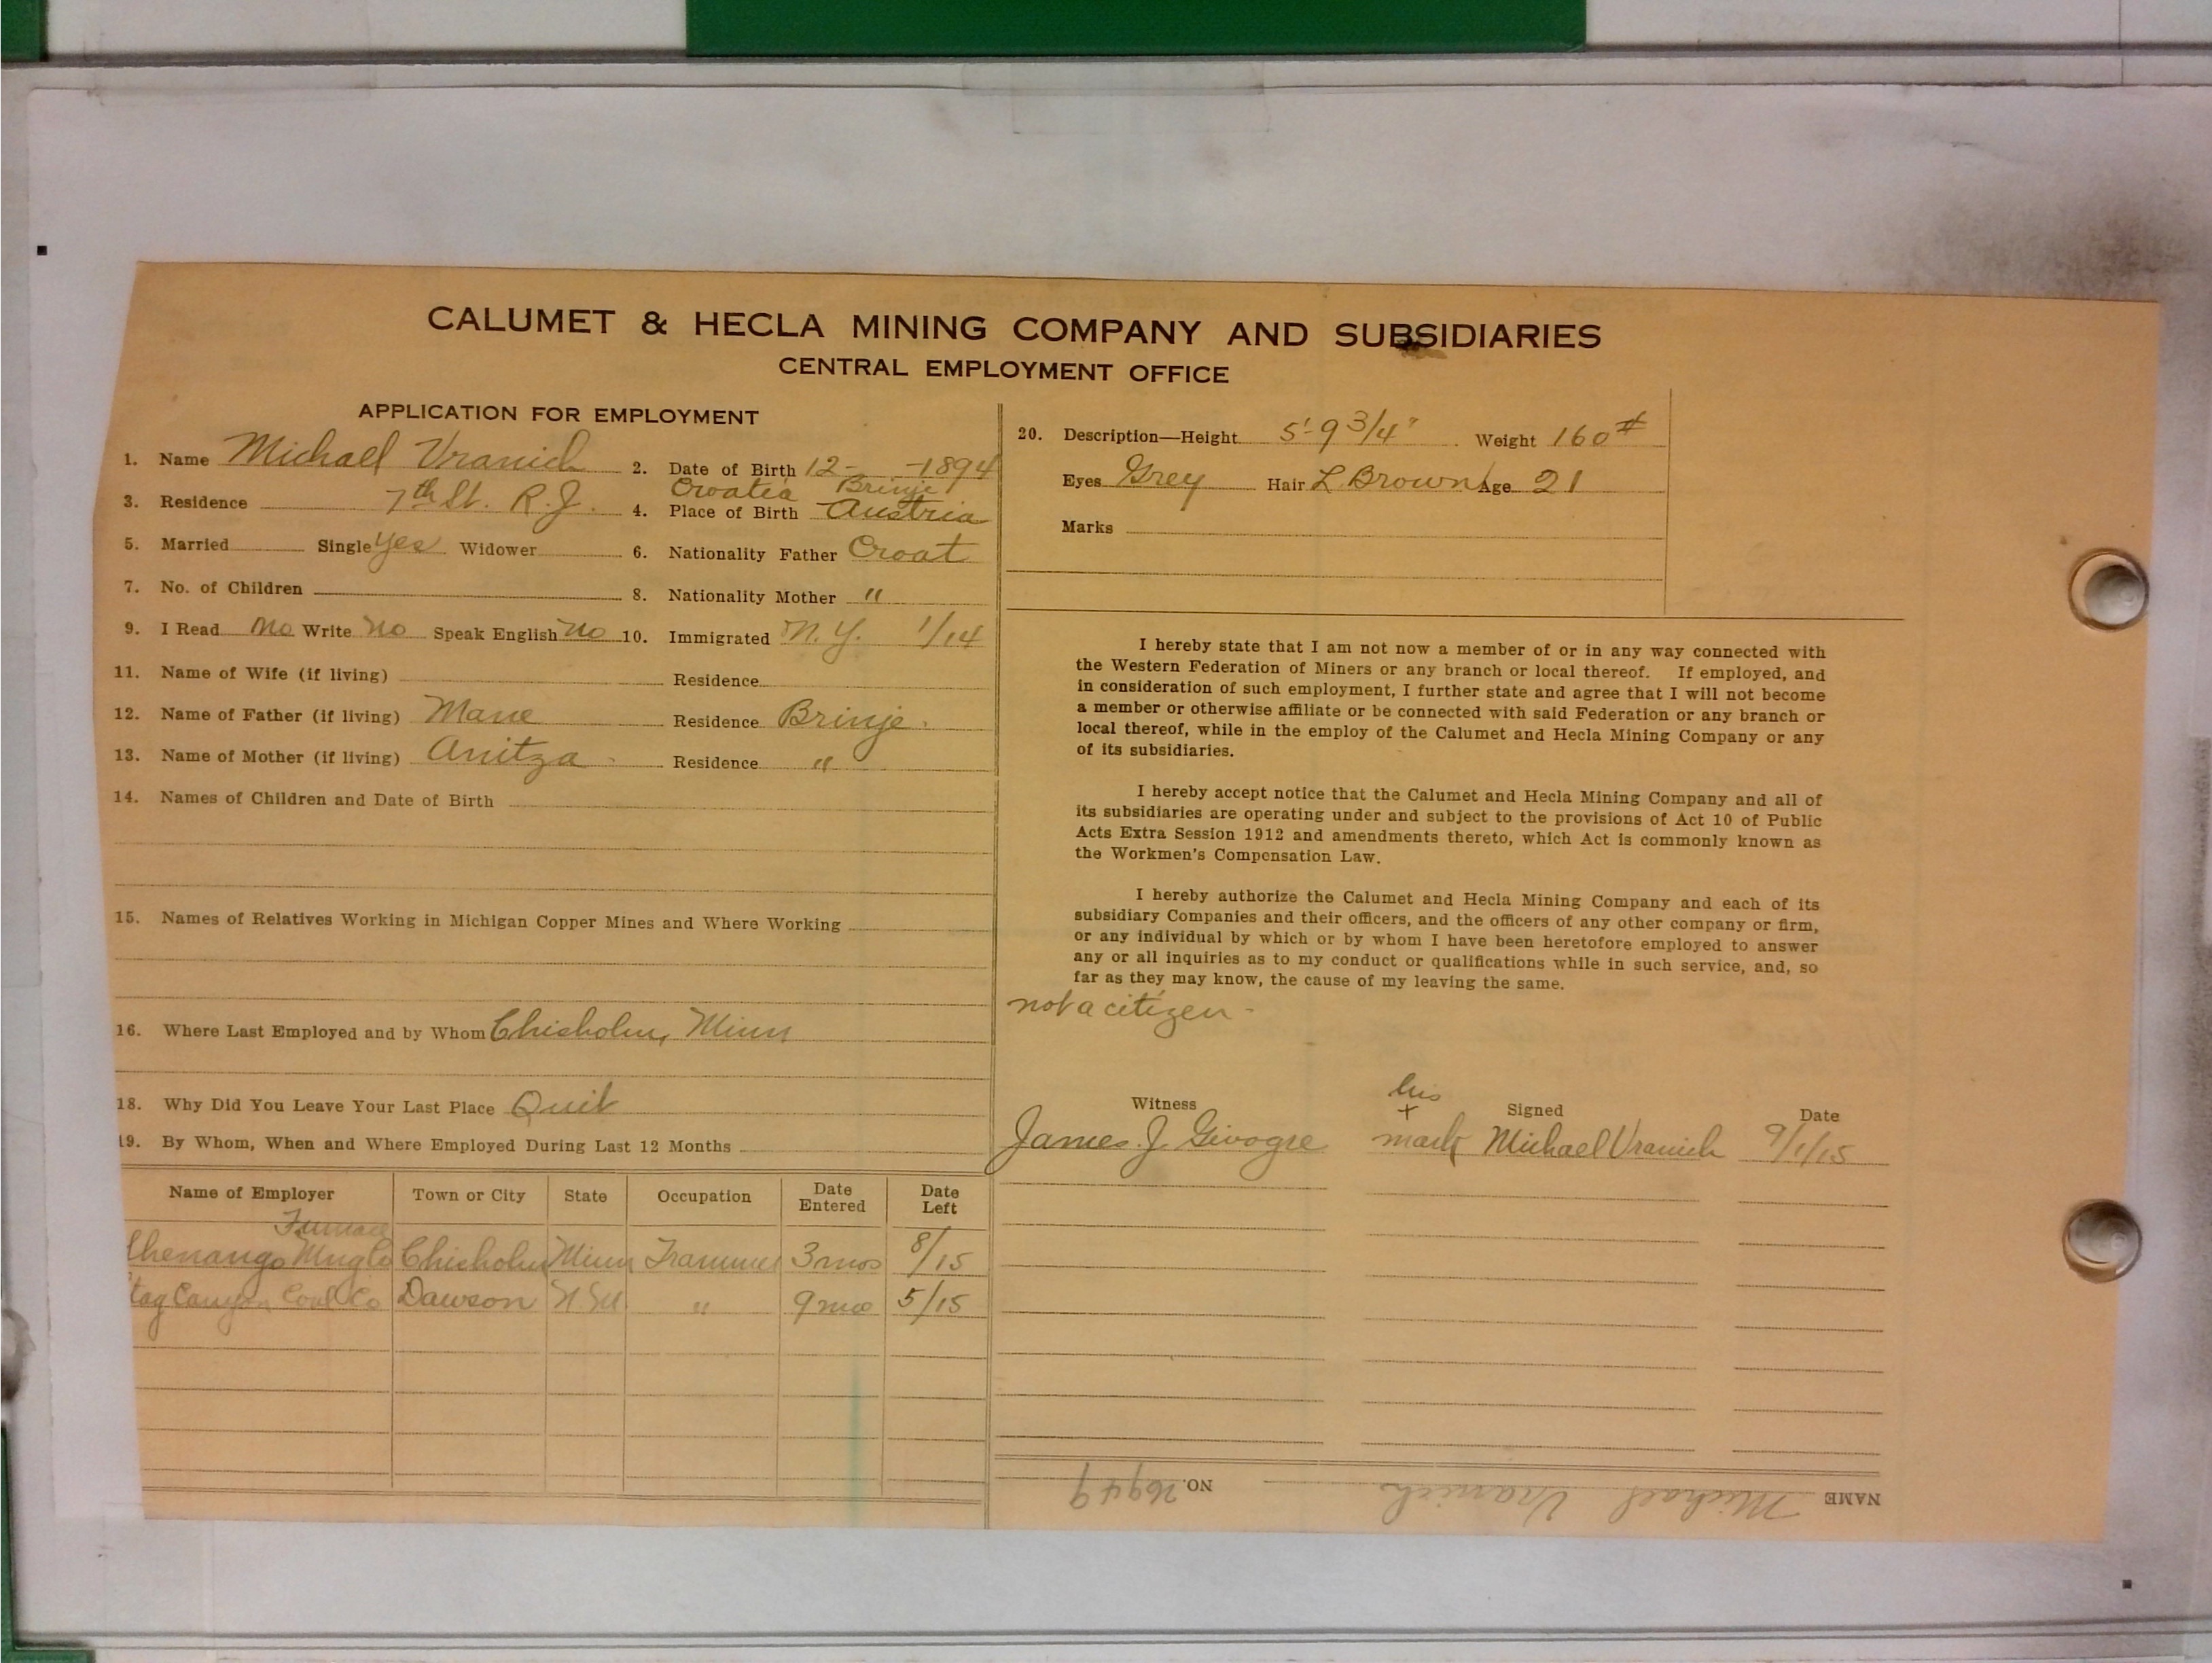 CALUMET & HECLA MINING COMPANY AND SUBSIDIARIES
CENTRAL EMPLOYMENT OFFICE
APPLICATION FOR EMPLOYMENT
1. Name Michael Vranich 2. Date of Birth 12- -1894
Croatia Brinje
3. Residence 7th St. R.J. 4. Place of Birth Austria
5. Married Single yes Widower 6. Nationality Father Croat
7. No. of Children 8. Nationality Mother "
9. I Read No Write No Speak English No 10. Immigrated N.Y. 1/14
11. Name of Wife (if living) Residence
12. Name of Father (if living) Mane Residence Brinje.
13. Name of Mother (if living) Anitza Residence "
14. Names of Children and Date of Birth
15. Names of Relatives Working in Michigan Copper Mines and Where Working
16. Where Last Employed and by Whom Chisholm, Minn
18. Why Did You Leave Your Last Place Quit
19. By Whom, When and Where Employed During Last 12 Months
Name of Employer Town or City State Occupation Date Entered Date Left
Furnace
Shenango Mng Co Chisholm Minn Trammer 3 mos 8/15
Stag Canyon Coal Co Dawson N.M " 9 mos 5/15
20. Description—Height 5'-9 3/4" Weight 160#
Eyes Grey Hair L Brown Age 21
Marks
I hereby state that I am not now a member of or in any way connected with
the Western Federation of Miners or any branch or local thereof. If employed, and
in consideration of such employment, I further state and agree that I will not become
a member or otherwise affiliate or be connected with said Federation or any branch or
local thereof, while in the employ of the Calumet and Hecla Mining Company or any
of its subsidiaries.
I hereby accept notice that the Calumet and Hecla Mining Company and all of
its subsidiaries are operating under and subject to the provisions of Act 10 of Public
Acts Extra Session 1912 and amendments thereto, which Act is commonly known as
the Workmen's Compensation Law.
I hereby authorize the Calumet and Hecla Mining Company and each of its
subsidiary Companies and their officers, and the officers of any other company or firm,
or any individual by which or by whom I have been heretofore employed to answer
any or all inquiries as to my conduct or qualifications while in such service, and, so
far as they may know, the cause of my leaving the same.
not a citizen -
Witness his + Signed Date
James J. Givogre mark Michael Vranich 9/1/15
NAME Michael Vranich NO. 26949